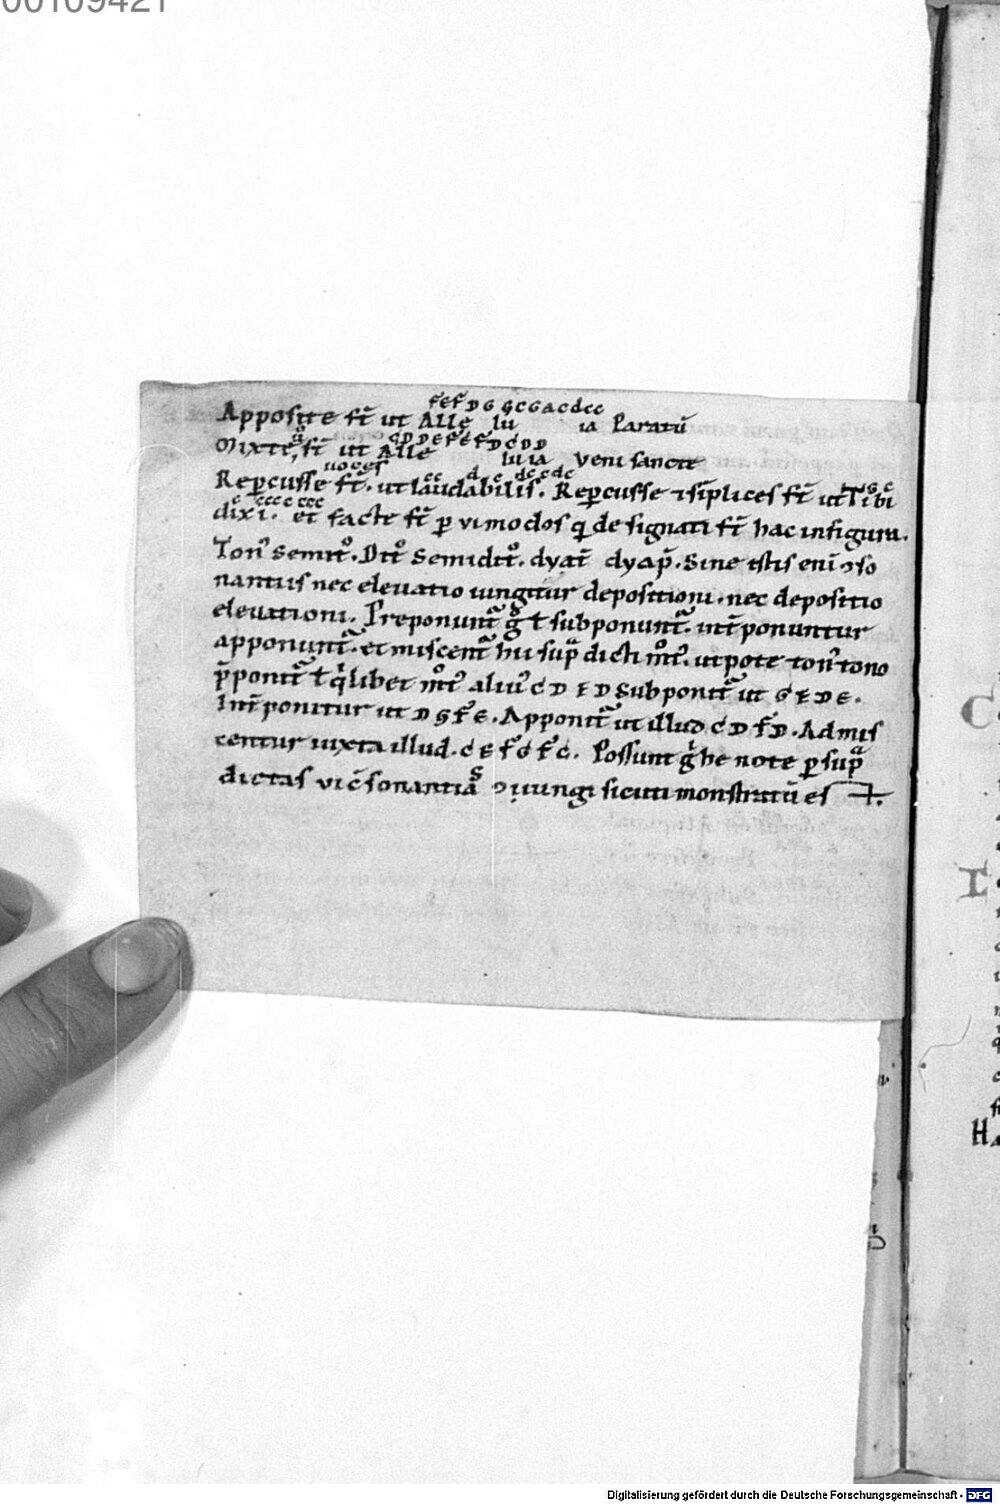 00109421
FEFDG GCGACdcc
Apposite st̄ ut Alle lu ia Paratū
CDDEFEFDCDD
Mixte, st̄ ut Alle lu ia veni sancte
uoces cc d c dccdc
Repcusse st̄. ut laudabilis. Repcusse ⁊ sīplices st̄ ut Tibi
c cccc ccc
dixi. et facte st̄ p̱ vi modos q̱ de signati st̄ hac in figura.
Ton᷒ semit̊. Dit̊ semidit̊. dyat̄ dyap̄. Sine istis eni ↄso
nantiis nec eleuatio iungitur depositioni. nec depositio
eleuationi. Preponunt᷑ g̊ ł subponunt᷑. int̄ponuntur
apponunt᷑. et miscent᷑ hii supᷓ dicti mot᷒. ut pote ton᷒ tono
p̄ponit᷑ ł q̇libet mot᷒ aliu᷒ C D E D Subponit᷑ ut G E D E.
Int̄ponitur ut D G F E. Apponit᷑ ut illud C D F D. Admis
centur iuxta illud. C E F G F C. Possunt g̊ he note p̱ supᷓ
dictas vi c̄sonantias ↄiungi sicuti monstratū es t.
Digitalisierung gefördert durch die Deutsche Forschungsgemeinschaft - DFG